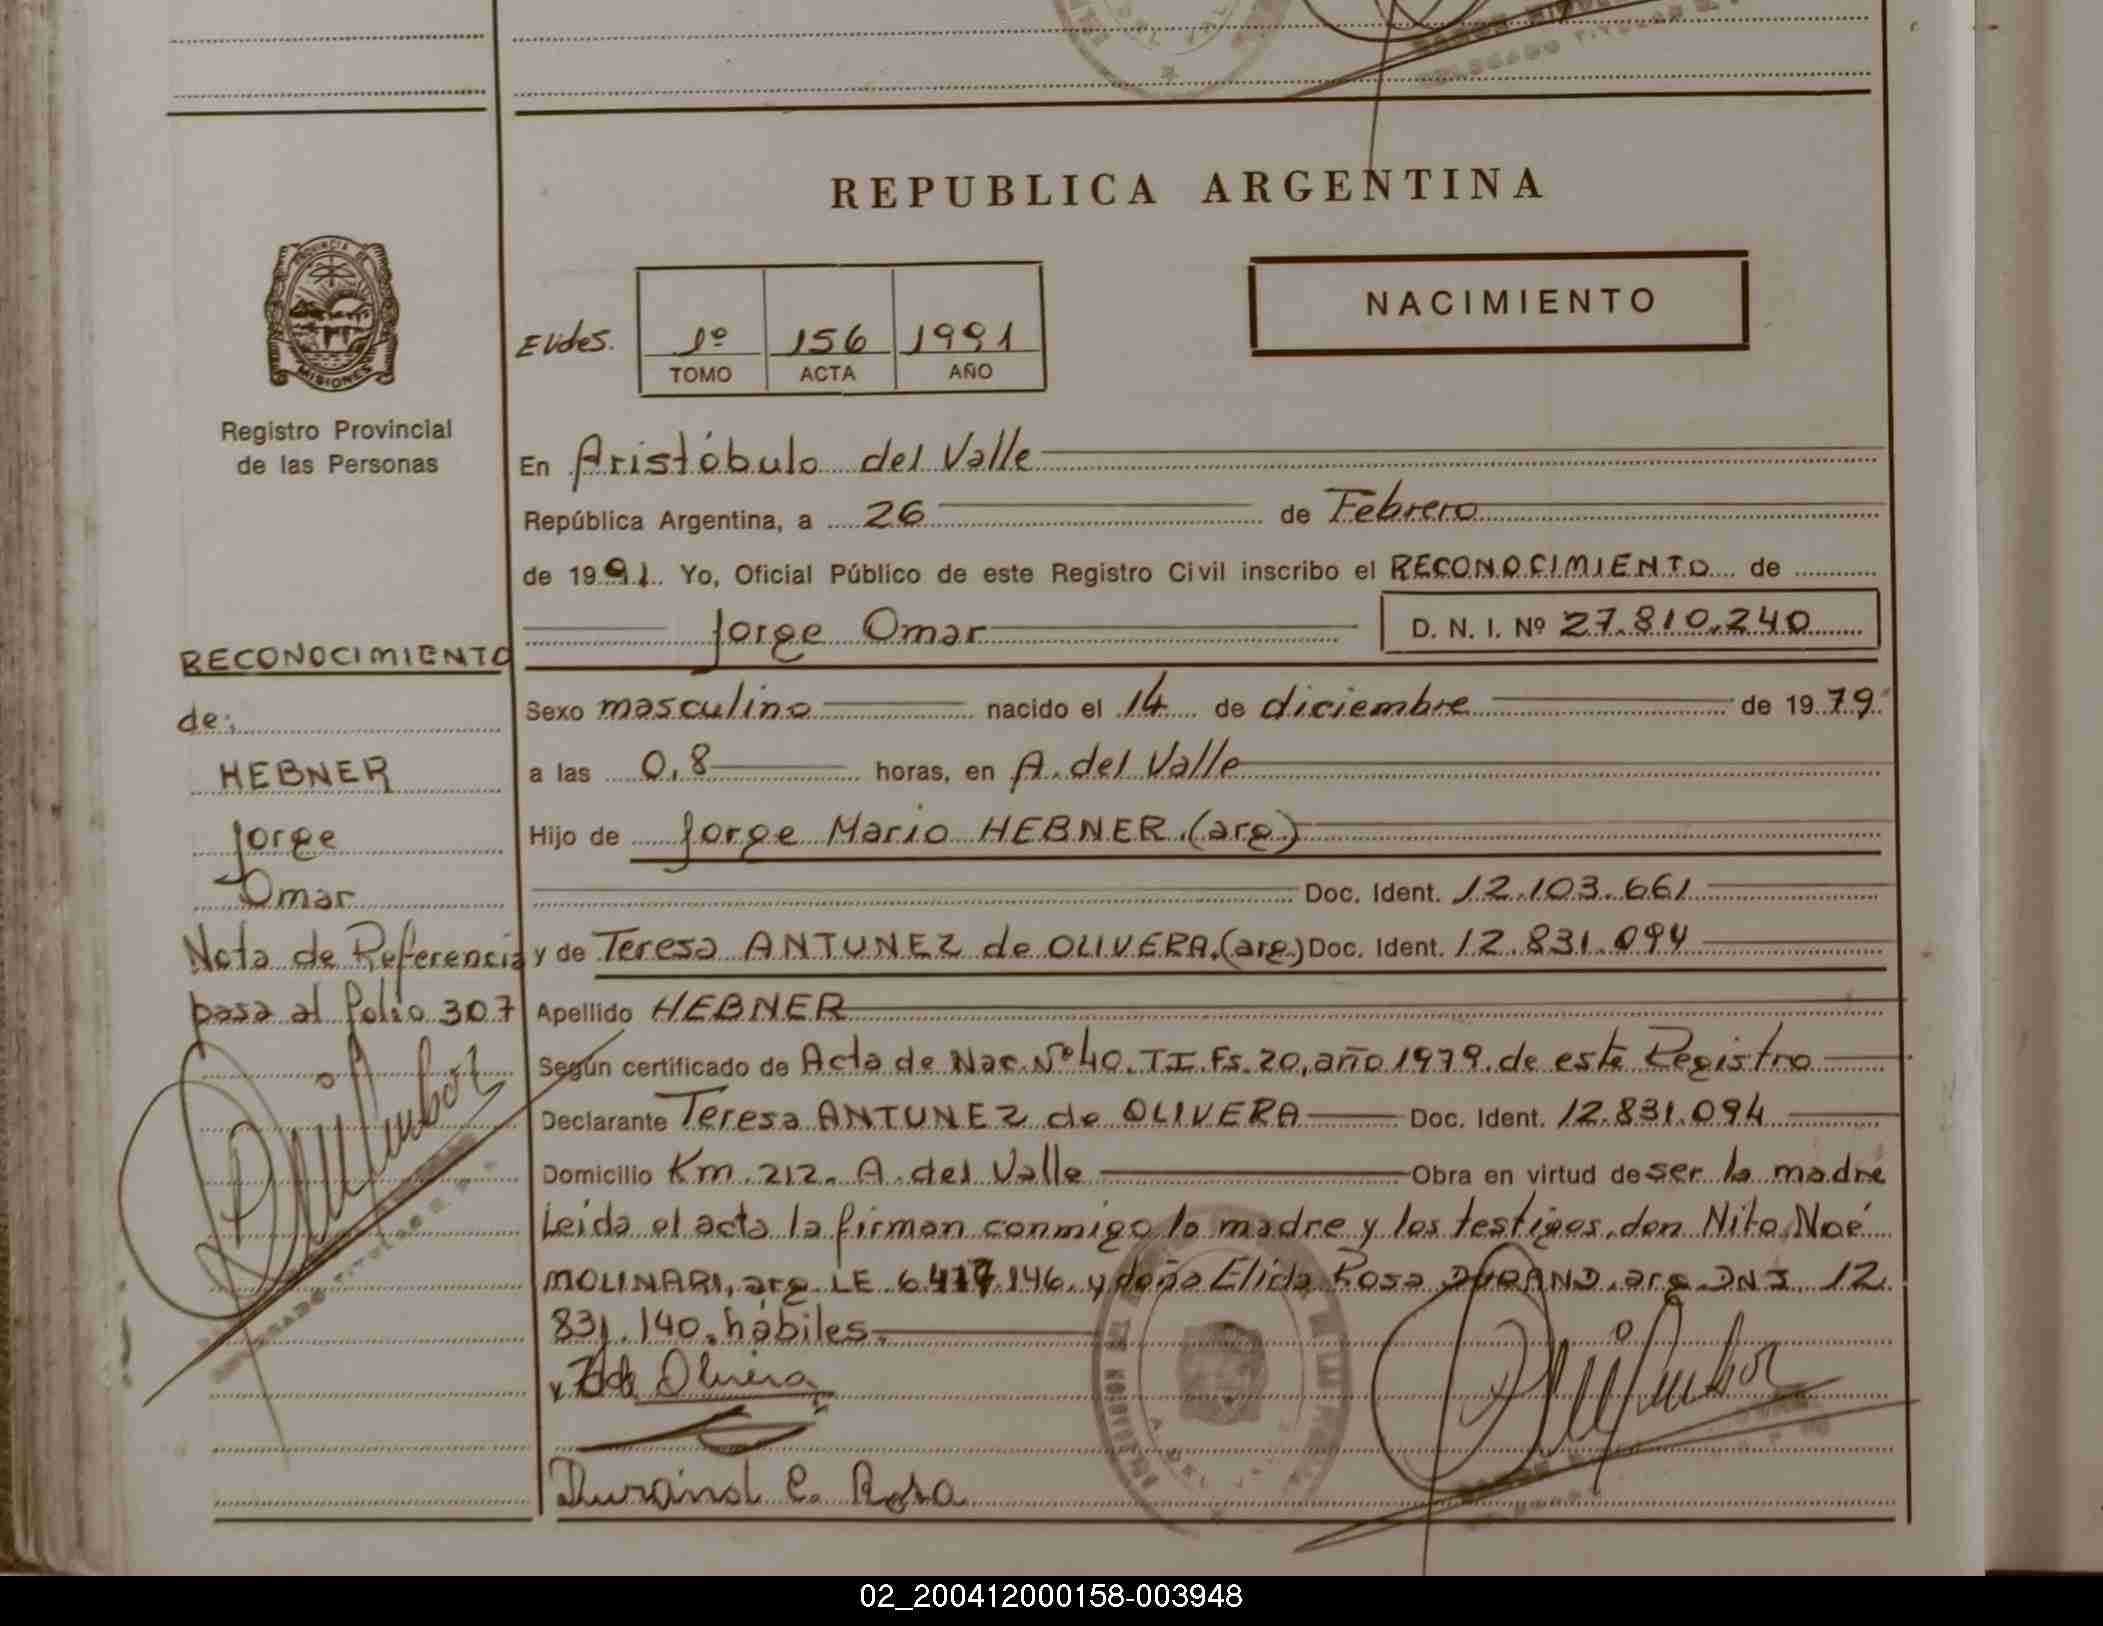 REPUBLICA ARGENTINA
NACIMIENTO
PROVINCIA DE
MISIONES
Registro Provincial
de las Personas
Elides. 1º 156 1991
TOMO ACTA AÑO
En Aristóbulo del Valle
República Argentina, a 26 de Febrero
de 1991. Yo, Oficial Público de este Registro Civil inscribo el RECONOCIMIENTO de
Jorge Omar D. N. I. Nº 27.810.240
Sexo masculino nacido el 14 de diciembre de 1979
a las 0,8 horas, en A. del Valle
Hijo de Jorge Mario HEBNER.(arg)
Doc. Ident. 12.103.661
y de Teresa ANTUNEZ de OLIVERA.(arg.) Doc. Ident. 12.831.094
Apellido HEBNER
Según certificado de Acta de Nac. Nº 40. TI. Fs. 20, año 1979. de este Registro
Declarante Teresa ANTUNEZ de OLIVERA Doc. Ident. 12.831.094
Domicilio Km. 212. A. del Valle Obra en virtud de ser la madre
Leida el acta la firman conmigo la madre y los testigos, don Nito Noé
MOLINARI, arg. LE 6. .146. y doña Elida Rosa DURAND. arg. DNI. 12
831.140. hábiles.
Olivera
Durand E. Rosa
RECONOCIMIENTO
de:
HEBNER
Jorge
Omar
Nota de Referencia
pasa al folio 307
02_200412000158-003948